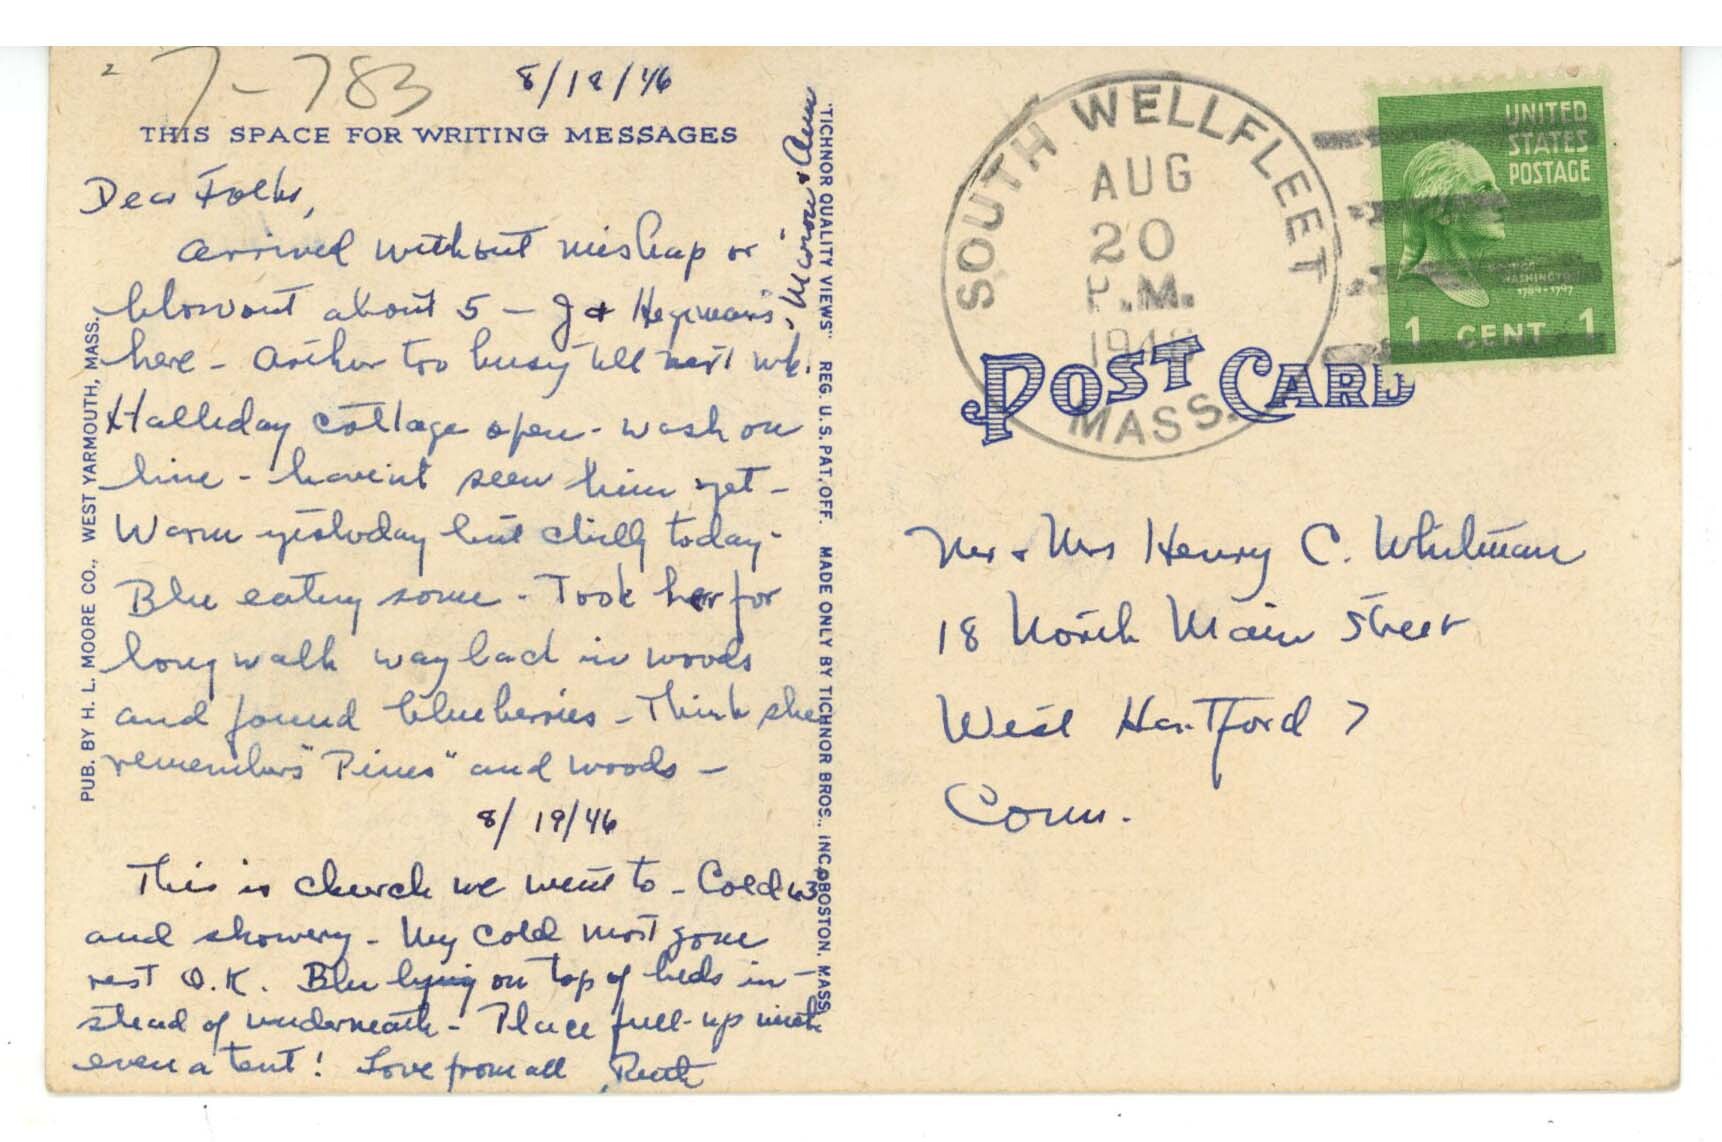 7-783
8/18/46
THIS SPACE FOR WRITING MESSAGES
Dear Folks,
Arrived without mishap or
blowout about 5 - J & Hegeman's,
here - Arthur too busy till next wk.
Halliday cottage open - wash on
line - haven't seen him yet -
Warm yesterday but chilly today -
Blu eating some - Took her for
long walk way back in woods
and found blueberries - Think she
remembers "Pines" and woods -
8/19/46
This is church we went to - Cold 63
and showery - My cold most gone
rest O.K. Blu lying on top of beds in-
stead of underneath - Place full-up with
even a tent! Love from all Ruth
Marion & Ann
PUB. BY H. L. MOORE CO., WEST YARMOUTH, MASS.
"TICHNOR QUALITY VIEWS" REG. U. S. PAT. OFF. MADE ONLY BY TICHNOR BROS., INC. BOSTON, MASS.
SOUTH WELLFLEET
AUG
20
P.M.
MASS.
UNITED
STATES
POSTAGE
WASHINGTON
1789-1797
1 CENT 1
POST CARD
Mr & Mrs Henry C. Whitman
18 North Main Street
West Hartford 7
Conn.